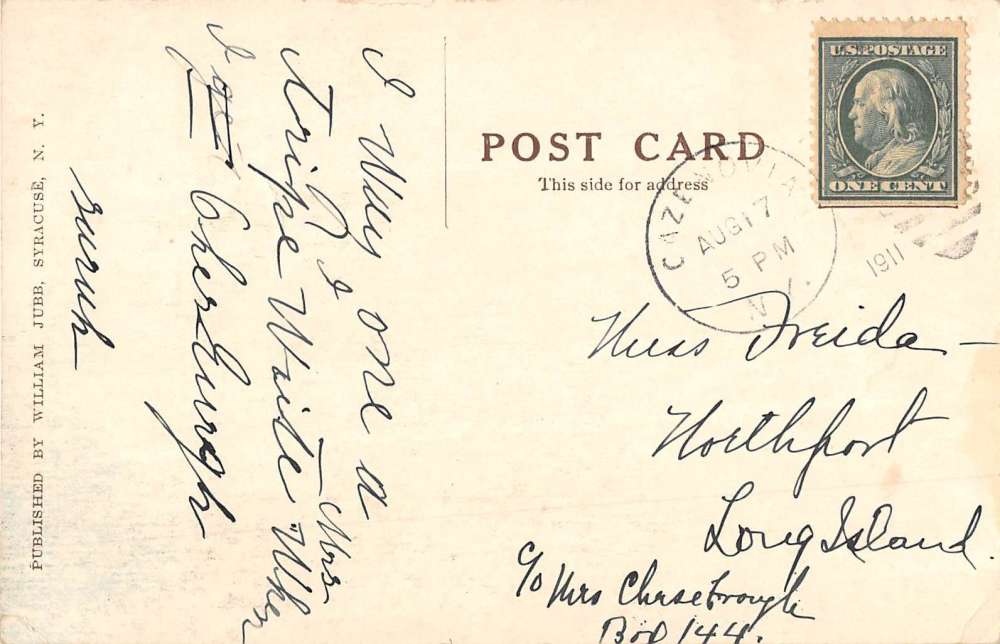 PUBLISHED BY WILLIAM JUBB, SYRACUSE, N. Y.
POST CARD
This side for address
U.S. POSTAGE
ONE CENT
CAZENOVIA
AUG 17
5 PM
N.Y.
1911
I Will one a
I Mrs
Write When
I get
Miss Freida
Northport
Long Island.
c/o Mrs Chesebrough
Box 144.